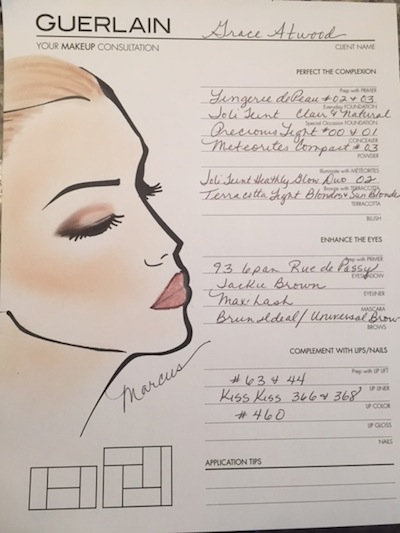 GUERLAIN
Grace Atwood
YOUR MAKEUP CONSULTATION
CLIENT NAME
PERFECT THE COMPLEXION
Prep with PRIMER
Lingerie de Peau #02 & 03
Everyday FOUNDATION
Joli Teint Clair & Natural
Special Occasion FOUNDATION
Precious Light #00 & 01
CONCEALER
Meteorites Compact #03
POWDER
Illuminate with METEORITES
Joli Teint Heathly Glow Duo 02
Bronze with TERRACOTTA
Terracotta Light Blondes & Sun Blonde
TERRACOTTA
BLUSH
ENHANCE THE EYES
Prep with PRIMER
93 6pan Rue de Passy
EYESHADOW
Jackie Brown
EYELINER
Max Lash
MASCARA
Brun Ideal/ Universal Brow
BROWS
COMPLEMENT WITH LIPS/NAILS
Prep with LIP LIFT
#63 & 44
LIP LINER
Kiss Kiss 366 & 368
LIP COLOR
#460
LIP GLOSS
NAILS
Marcus
APPLICATION TIPS